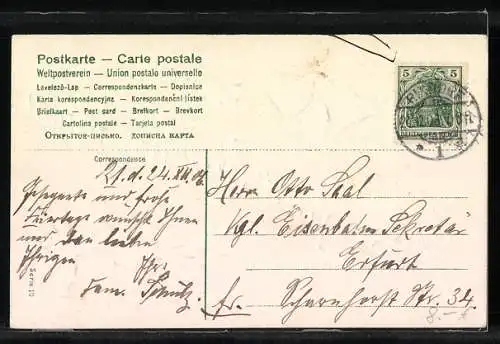 Postkarte — Carte postale
Weltpostverein — Union postale universelle
Levelező-Lap — Correspondenzkarte — Dopisnice
Karta korespondencyjna — Korespondenční lístek
Briefkaart — Post card — Brefkort — Brevkort
Cartolina postale — Tarjeta postal
Открытое-письмо. Дописна карта
5 5
1
Correspondence
d. 24. XII. 06.
Gesegnete und frohe
Feiertage wünscht Ihnen
und den lieben
Ihrigen Ihr.
Fam.
Serie 10
Herrn Otto Saal
Kgl. Eisenbahn Sekretär
Erfurt
fr. Scharnhorst Str. 34.
8.—